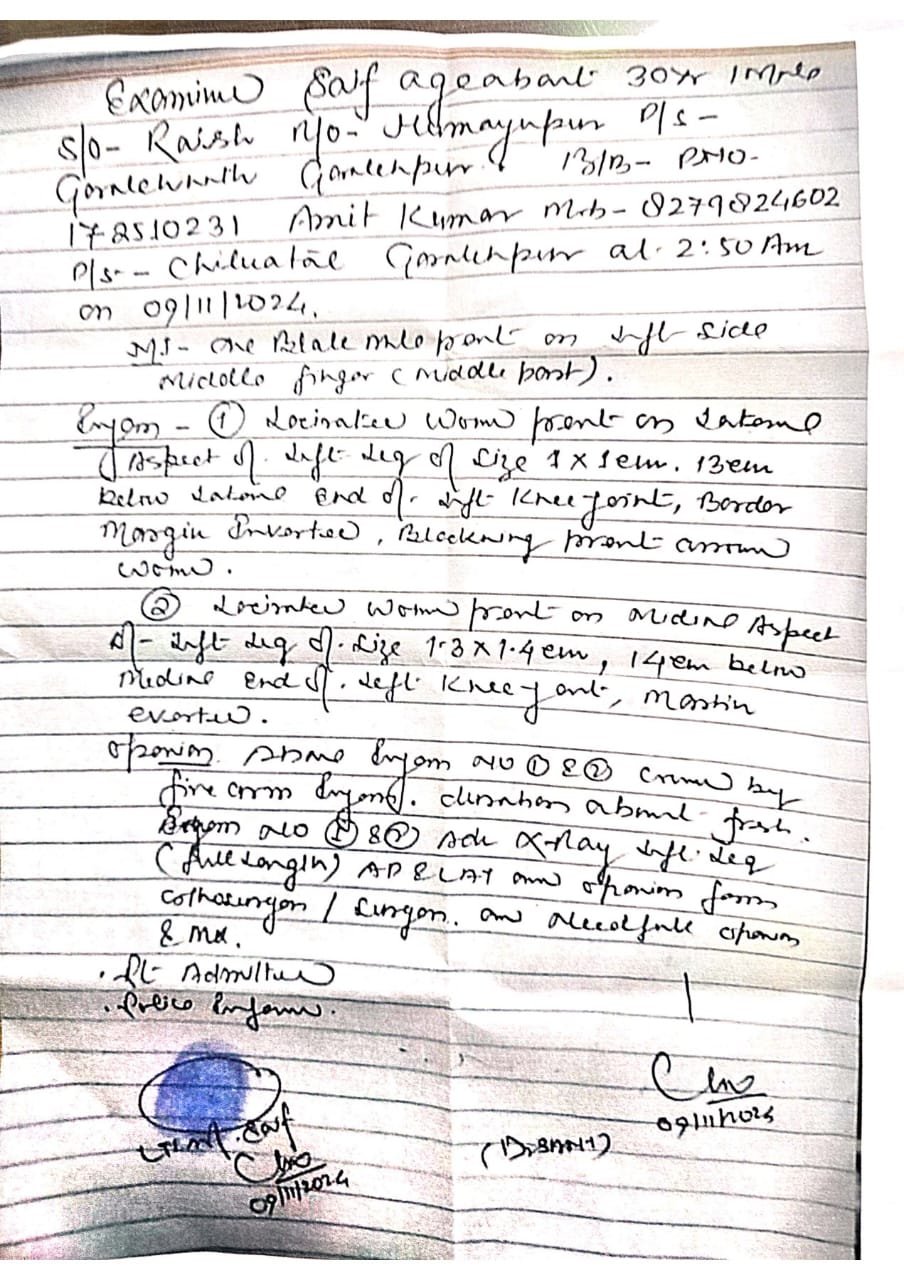 Examine Saif age about 30yr / Male
S/o- Raish R/o- Humayupur P/s-
Goralchnath Goralchpur. B/B- PNO-
178510231 Amit Kumar Mob- 8279824602
P/s- - Chiluatal Goralchpur at. 2:50 Am
on 09/11/2024.
MI- one Blale mole prant on left side
Middle finger (middle part).
Enjom - ① Locirated Woun prent on Latome
Aspect of. Left Leg of size 1 x 1cm. 13cm
below Latome End of. Left Knee joint, Bordor
Margin Invertee, Blackning present arroun
woun.
② Locirated woun prent on Midine Aspect
of- Left Leg of. size 1.3 x 1.4 cm, 14 cm below
Midine end of. Left Knee joint, Margin
everted.
oponion. Above Enjom NO ① & ② Crime by
fire arm Enjom. duration about fresh.
Enjom NO ① & ② Adv X-Ray Left. Leg
(full Langth) AP & LAT and oponion form
/ Surgon. an needfull oponion
& Mx.
. Pt Admitted
. Police Enform.
09/11/2024
Saif
09/11/2024